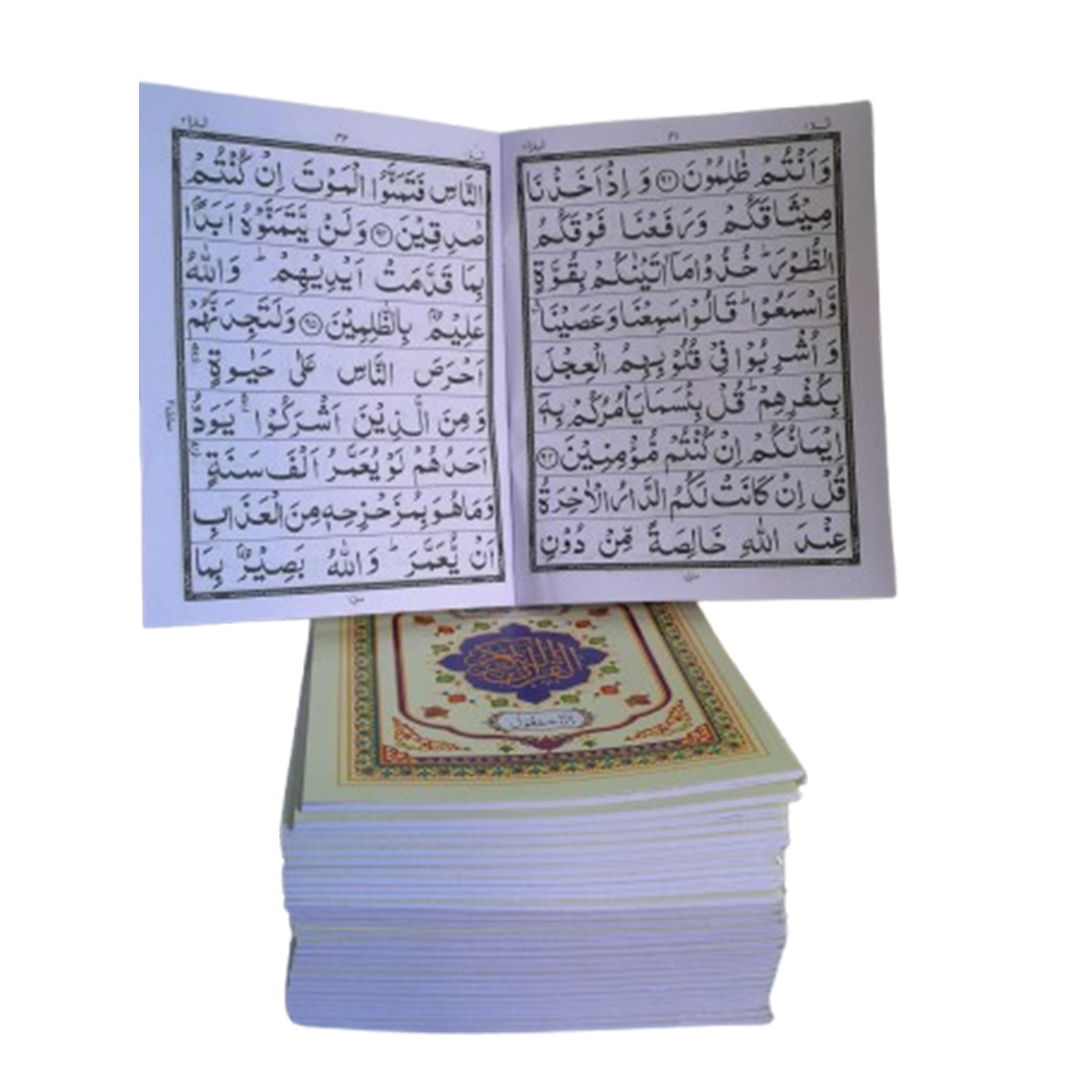 البقرة ٢
٣١
وَاَنْتُمْ ظٰلِمُوْنَ ﴿۹۲﴾ وَ اِذْ اَخَذْنَا
مِيْثَاقَكُمْ وَرَفَعْنَا فَوْقَكُمُ
الطُّوْرَ ؕ خُذُوْا مَاۤ اٰتَيْنٰكُمْ بِقُوَّةٍ
وَّاسْمَعُوْا ؕ قَالُوْا سَمِعْنَا وَعَصَيْنَا
وَ اُشْرِبُوْا فِيْ قُلُوْبِهِمُ الْعِجْلَ
بِكُفْرِهِمْ ؕ قُلْ بِئْسَمَا يَاْمُرُكُمْ بِهٖۤ
اِيْمَانُكُمْ اِنْ كُنْتُمْ مُّؤْمِنِيْنَ ﴿۹۳﴾
قُلْ اِنْ كَانَتْ لَكُمُ الدَّارُ الْاٰخِرَةُ
عِنْدَ اللّٰهِ خَالِصَةً مِّنْ دُوْنِ
البقرة ٢
٣٢
النَّاسِ فَتَمَنَّوُا الْمَوْتَ اِنْ كُنْتُمْ
صٰدِقِيْنَ ﴿۹۴﴾ وَلَنْ يَّتَمَنَّوْهُ اَبَدًۢا
بِمَا قَدَّمَتْ اَيْدِيْهِمْ ؕ وَاللّٰهُ
عَلِيْمٌۢ بِالظّٰلِمِيْنَ ﴿۹۵﴾ وَلَتَجِدَنَّهُمْ
اَحْرَصَ النَّاسِ عَلٰى حَيٰوةٍ
وَمِنَ الَّذِيْنَ اَشْرَكُوْا يَوَدُّ
اَحَدُهُمْ لَوْ يُعَمَّرُ اَلْفَ سَنَةٍ
وَمَا هُوَ بِمُزَحْزِحِهٖ مِنَ الْعَذَابِ
اَنْ يُّعَمَّرَ ؕ وَاللّٰهُ بَصِيْرٌۢ بِمَا
القرآن الكريم